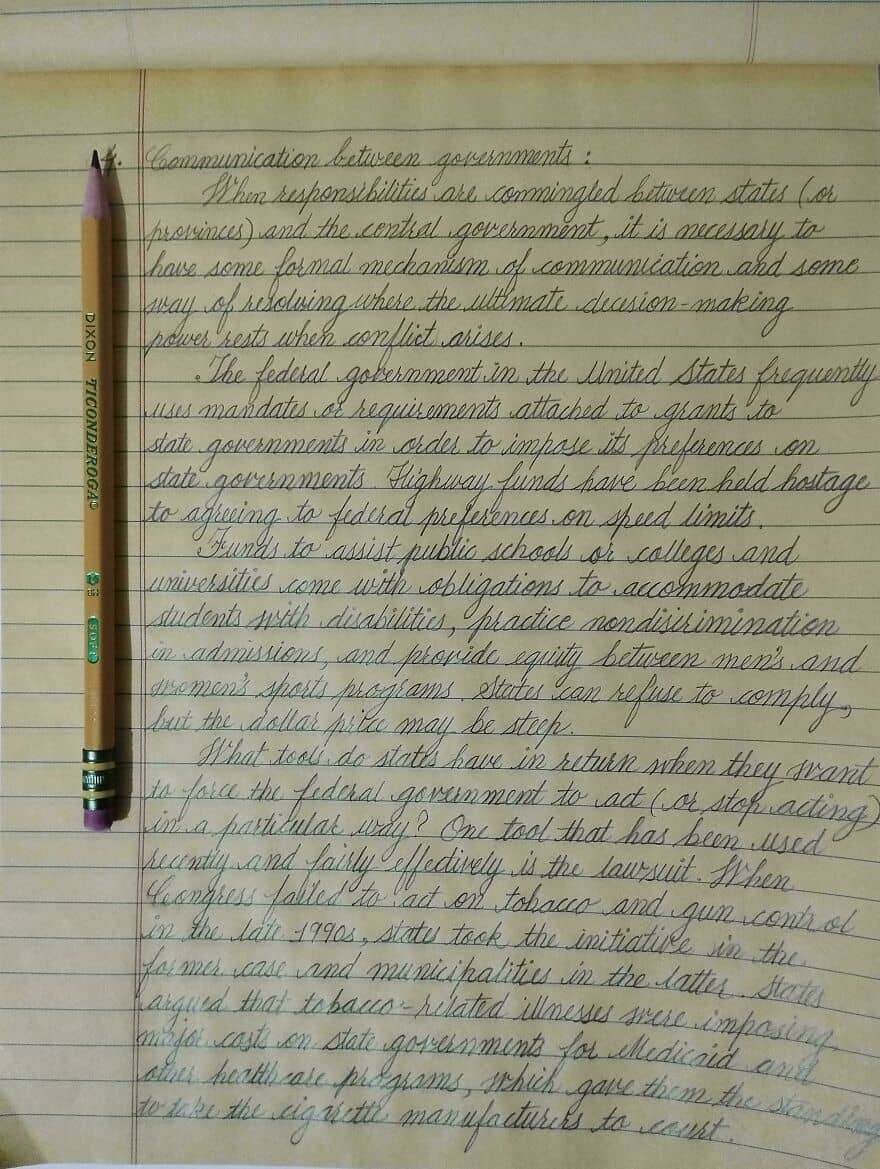 DIXON TICONDEROGA®
SOFT
4. Communication between governments:
When responsibilities are commingled between states (or
provinces) and the central government, it is necessary to
have some formal mechanism of communication and some
way of resolving where the ultimate decision-making
power rests when conflict arises.
The federal government in the United States frequently
uses mandates or requirements attached to grants to
state governments in order to impose its preferences on
state governments. Highway funds have been held hostage
to agreeing to federal preferences on speed limits.
Funds to assist public schools or colleges and
universities come with obligations to accommodate
students with disabilities, practice nondisirimination
in admissions, and provide equity between men's and
women's sports programs. States can refuse to comply,
but the dollar price may be steep.
What tools do states have in return when they want
to force the federal government to act (or stop acting)
in a particular way? One tool that has been used
recently and fairly effectively is the lawsuit. When
Congress failed to act on tobacco and gun control
in the late 1990s, states took the initiative in the
former case and municipalities in the latter. States
argued that tobacco-related illnesses were imposing
major costs on state governments for Medicaid and
other health care programs, which gave them the standing
to take the cigarette manufacturers to court.